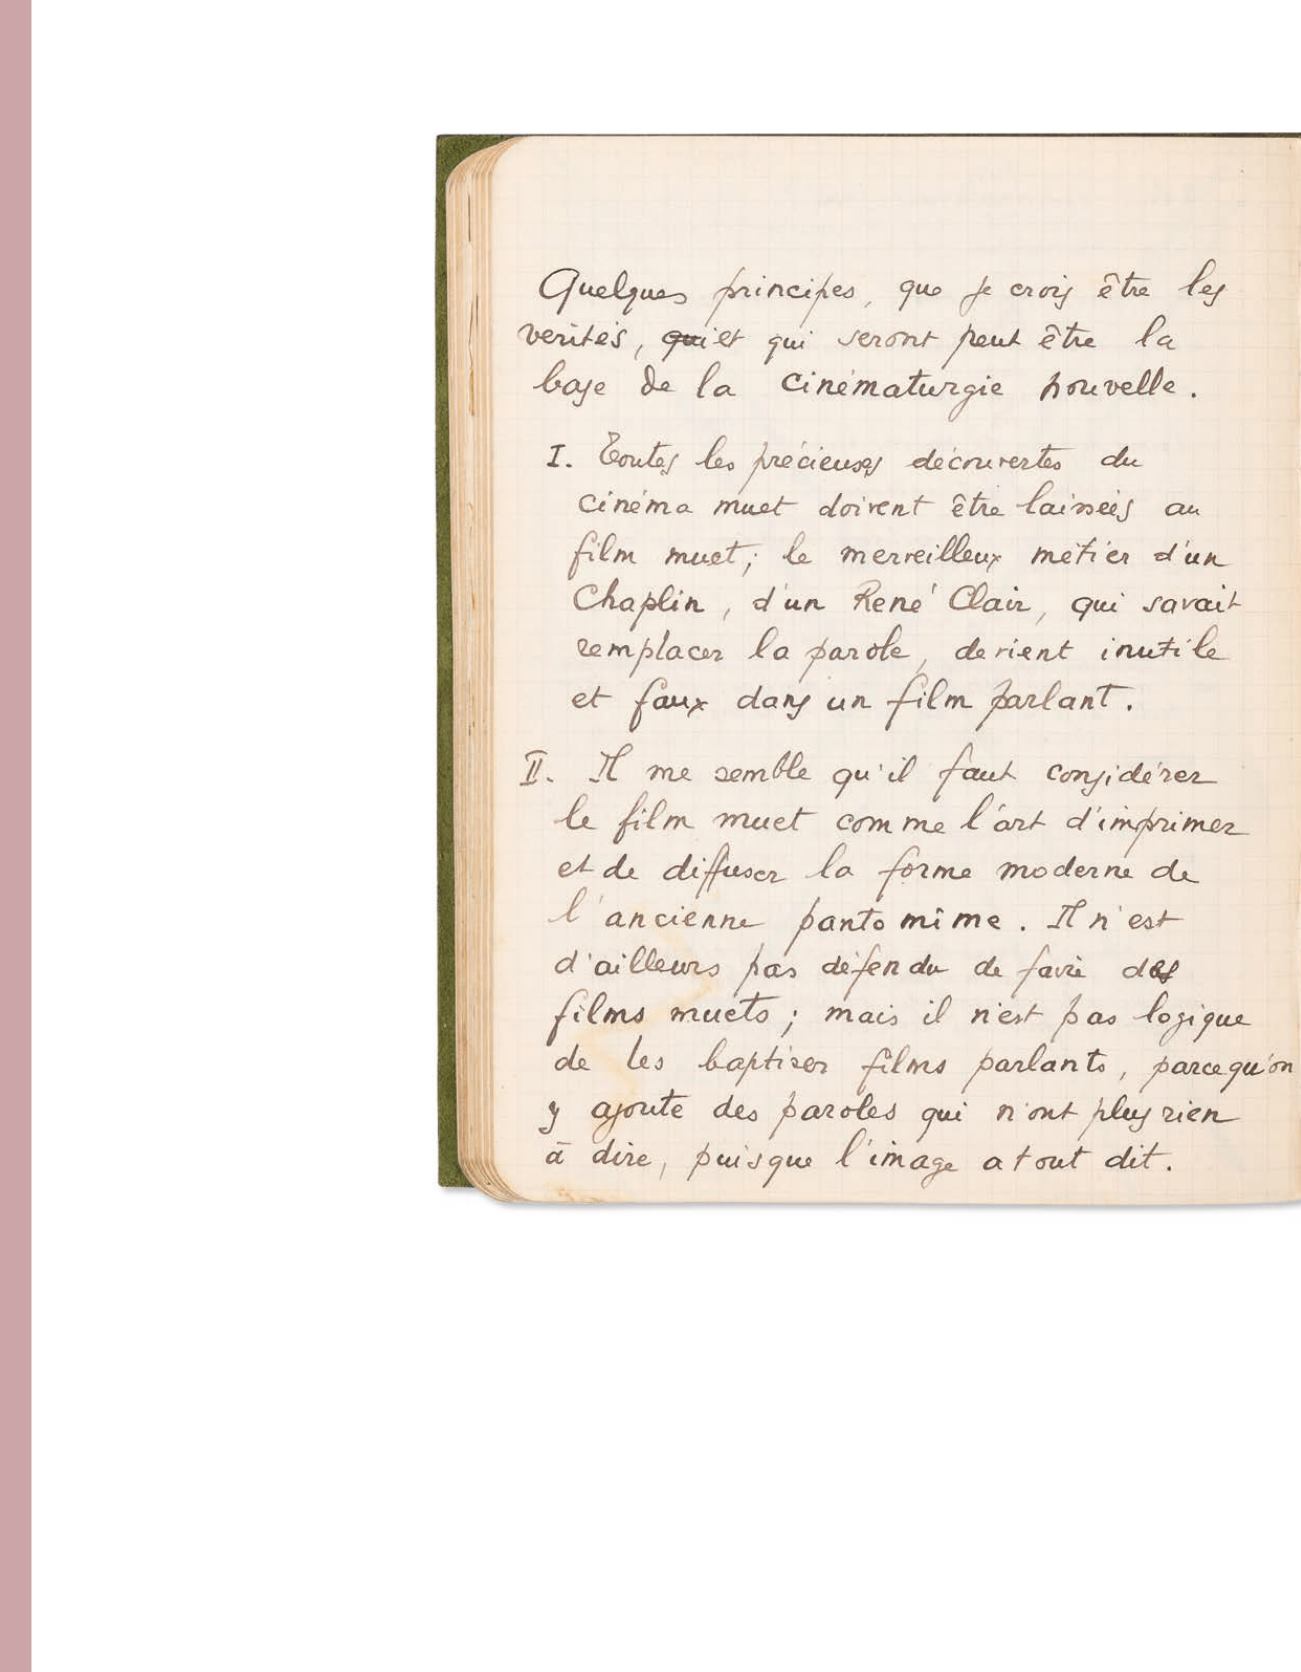 Quelques principes, que je crois être les
verités, qui et qui seront peut être la
base de la cinématurgie nouvelle.
I. Toutes les précieuses découvertes du
cinéma muet doivent être laissées au
film muet; le merveilleux métier d'un
Chaplin, d'un René Clair, qui savait
remplacer la parole, devient inutile
et faux dans un film parlant.
II. Il me semble qu'il faut considérer
le film muet comme l'art d'imprimer
et de diffuser la forme moderne de
l'ancienne pantomime. Il n'est
d'ailleurs pas défendu de faire des
films muets; mais il n'est pas logique
de les baptiser films parlants, parcequ'on
y ajoute des paroles qui n'ont plus rien
à dire, puisque l'image a tout dit.